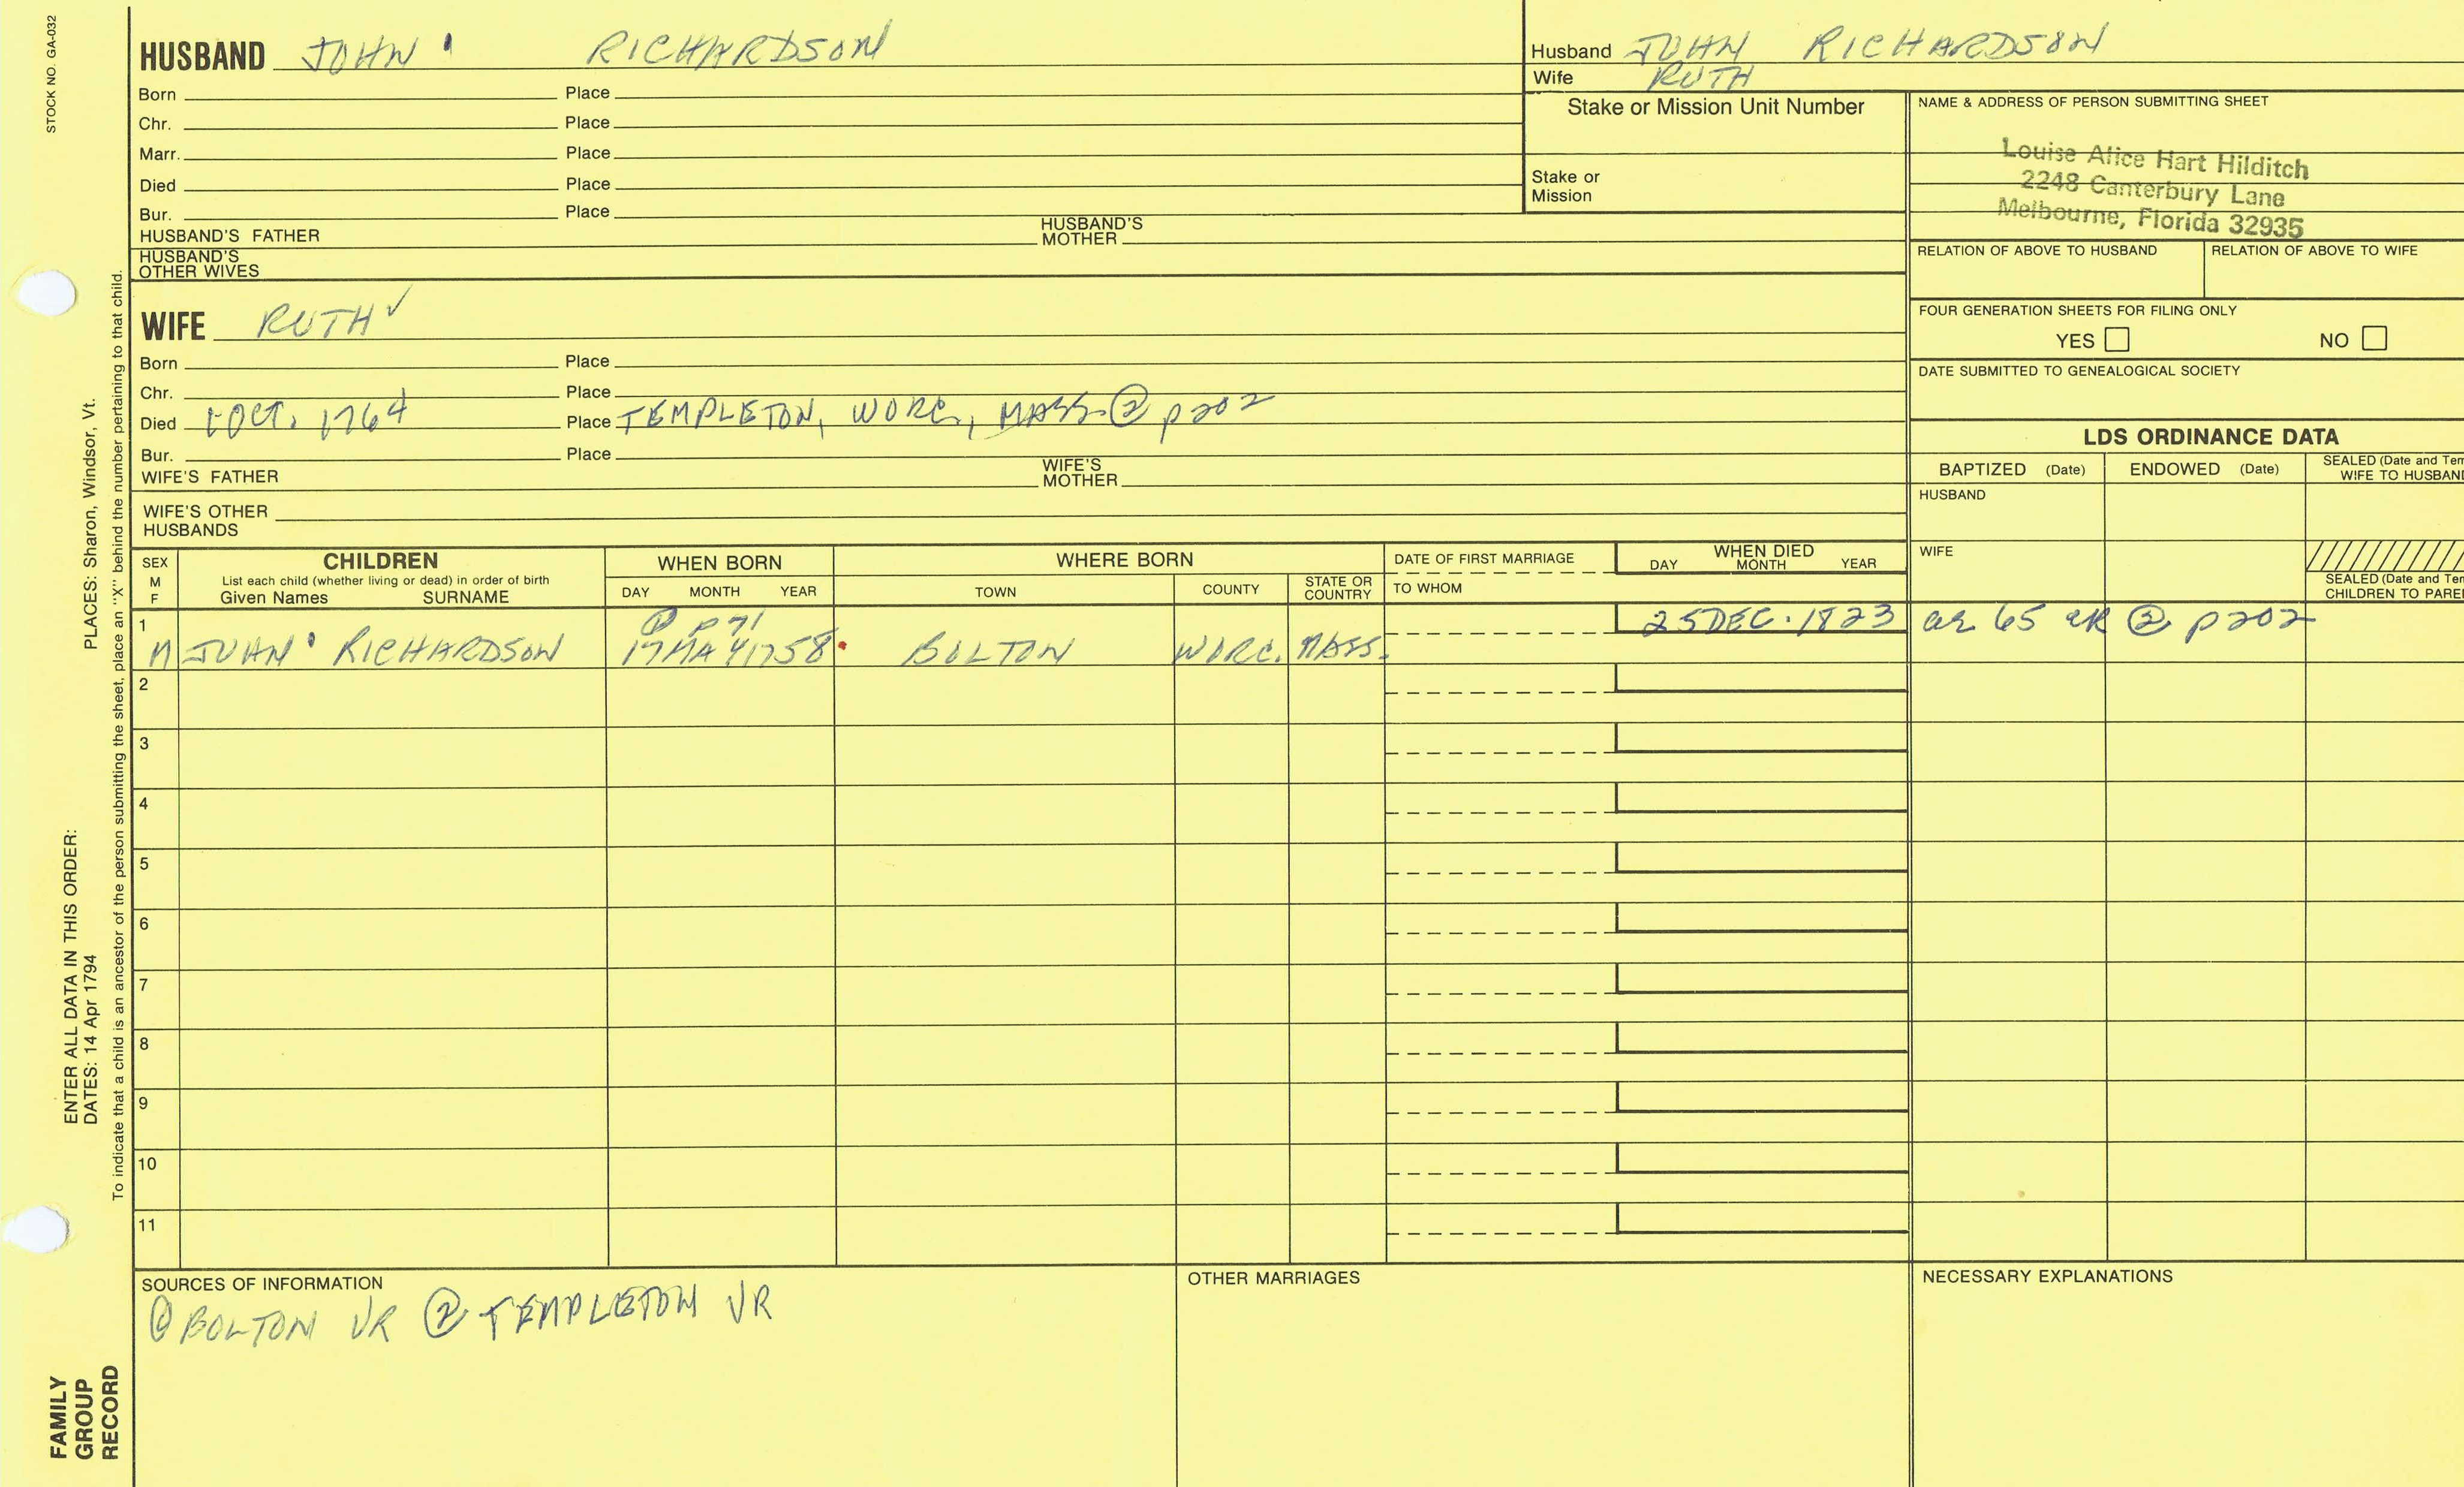 STOCK NO. GA-032
HUSBAND JOHN RICHARDSON
Born Place
Chr. Place
Marr. Place
Died Place
Bur. Place
HUSBAND'S FATHER HUSBAND'S MOTHER
HUSBAND'S OTHER WIVES
Husband JOHN RICHARDSON
Wife RUTH
Stake or Mission Unit Number
Stake or Mission
NAME & ADDRESS OF PERSON SUBMITTING SHEET
Louise Alice Hart Hilditch
2248 Canterbury Lane
Melbourne, Florida 32935
RELATION OF ABOVE TO HUSBAND RELATION OF ABOVE TO WIFE
FOUR GENERATION SHEETS FOR FILING ONLY
YES NO
DATE SUBMITTED TO GENEALOGICAL SOCIETY
WIFE RUTH ✓
Born Place
Chr. Place
Died OCT. 1764 Place TEMPLETON, WORC, MASS ② p202
Bur. Place
WIFE'S FATHER WIFE'S MOTHER
WIFE'S OTHER HUSBANDS
LDS ORDINANCE DATA
BAPTIZED (Date) ENDOWED (Date) SEALED (Date and WIFE TO
HUSBAND
WIFE
SEALED (Date and CHILDREN TO
SEX M F CHILDREN WHEN BORN WHERE BORN DATE OF FIRST MARRIAGE WHEN DIED
List each child (whether living or dead) in order of birth
Given Names SURNAME DAY MONTH YEAR TOWN COUNTY STATE OR COUNTRY TO WHOM DAY MONTH YEAR
1 ① p71 25 DEC. 1823 ae 65 ② p202
M JOHN RICHARDSON 17 MAY 1758 BOLTON WORC. MASS.
2
3
4
5
6
7
8
9
10
11
SOURCES OF INFORMATION
① BOLTON VR ② TEMPLETON VR
OTHER MARRIAGES
NECESSARY EXPLANATIONS
ENTER ALL DATA IN THIS ORDER:
DATES: 14 Apr 1794 PLACES: Sharon, Windsor, Vt.
To indicate that a child is an ancestor of the person submitting the sheet, place an "X" behind the number pertaining to that child.
FAMILY
GROUP
RECORD